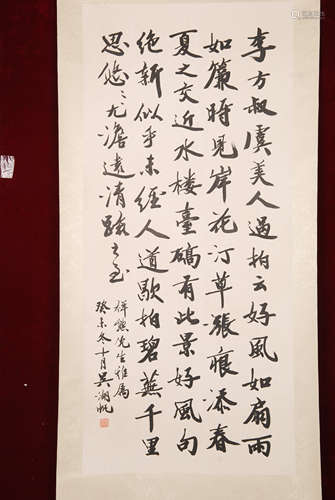 李方叔虞美人過拍云好風如扇雨
如簾時見岸花汀草漲痕添春
夏之交近水樓臺確有此景好風句
絶新似乎未經人道歇拍碧蕪千里
思悠悠尤澹遠清疎之至
祥熊先生雅屬
癸未冬十月吳湖帆